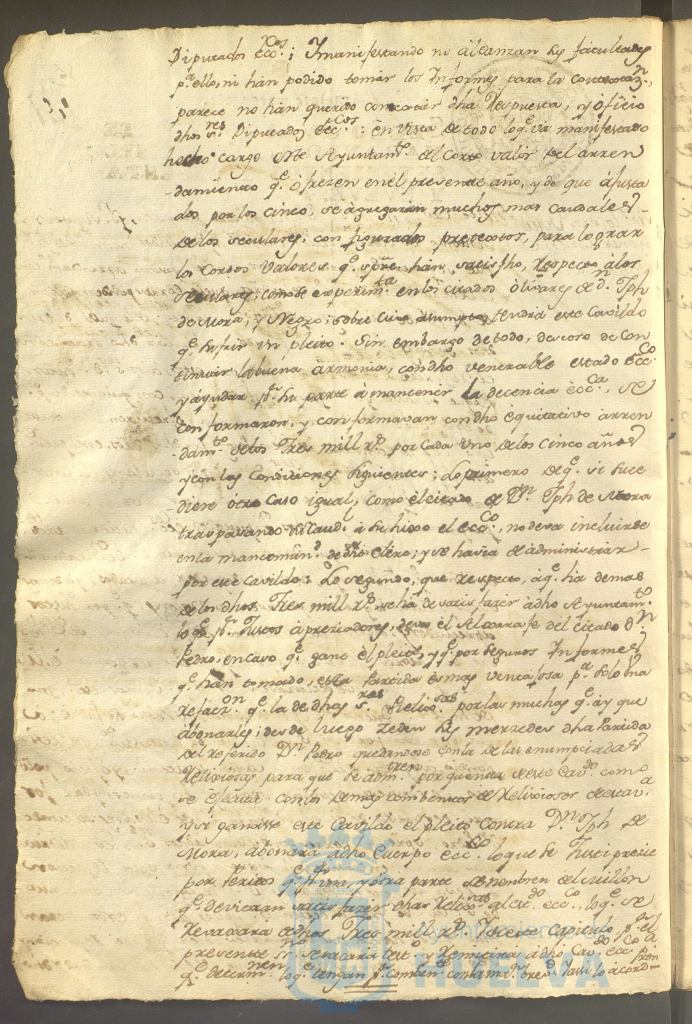 Diputados ecc.cos; Imanifestando no álcanzan sus facultades
p.a ello, ni han podido tomar los Informes para la contextaz.n
parece no han querido contextar dha Respuesta, y oficio
dhos s.res Diputados ecc.cos: en vista de todo lo q.e vá manifestado
hecho cargo este Ayuntam.to del corto valor del arren
damiento q.e ofrezen enel presente año, y de que ajusta
dos por los cinco, se ágregarán muchos mas caudales
delos seculares, con figurados pretextos, para lograr
los cortos valores q.e spre. han satisfho, respecto álos
seculares, como se experim.ta en los citados ólivares de d.n Jph
de Mora, y Negro; sobre cuio asumpto, tendrá este Cavildo
q.e sufrir un pleito. Sin embargo de todo, deseoso de con
tinuar la buena ármonia, con dho venerable estado ecc.co
y áyudar p.r su parte á mantener la decencia ecc.ca, se
conformaron, y conformavan con dho équitativo arren
dam.to delos Tres mill r.s por cada uno delos cinco años
y con las Condiciones siguientes: Lo primero de q.e si suce
diere ótro caso igual, como el citado de D.n Jph de Mora
traspasando su caud.l á su hijo el ecc.co, no deva incluirse
en la mancomun.d de dho Clero; y se havia de administrar
por este Cavildo: Lo segundo, que respecto, á q.e há demas
de los dhos Tres mill r.s se ha de satisfazer á dho Ayuntam.to
lo q.e p.r Justos ápreziadores, deva el Aljarafe del citado D.n
Pedro, en caso q.e gane el pleito, y q.e por seguros Informes
q.e han tomado, esta Partida es mas ventajosa p.a solo una
refacz.on q.e la de dhas s.ras Relig.sas por las muchas q.e ay que
abonarles; desde luego zeden sus mercedes dha Partida
del referido D.n Pedro quedandose con la de las enumpciadas
Religiosas para que se adm.tren por quenta de este Cav.do como
se éfectua con los demas combentos de Religiosos de esta v.a
y si ganase este Cavildo el pleito contra D.n Jph de
Mora, ábonará á dho Cuerpo ecc.co lo que se Justi prezie
por Peritos q.e p.r una, y ótra parte se nombren del Millon
q.e devieran satisfazer dhas Relig.sas al cav.do ecc.co, lo q.e se
revaxara de dhos Tres mill r.s Y de este Capitulo p.r el
presente s.no se sacará test.o y remitirá á dho Cav.do ecc.co p.a
q.e determinen lo q.e tengan p.r combeniente